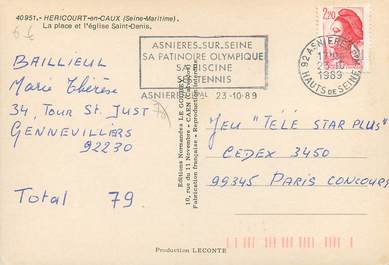 40951. - HERICOURT-en-CAUX (Seine-Maritime).
La place et l'église Saint-Denis.
6 €
ASNIERES-SUR-SEINE
SA PATINOIRE OLYMPIQUE
SA PISCINE
SES TENNIS
ASNIERES PAL 23-10-89
2,20
92 ASNIERES
23-10
1989
HAUTS DE SEINE
BAILLIEUL
Marie Thérèse
34, Tour St. JUST
GENNEVILLIERS
92230
Total 79.
Editions Normandes LE GOUBEY
10, rue du 11 Novembre - CAEN (Calvados)
Fabrication française - Reproduction interdite
JEU "TÉLÉ STAR PLUS"
CEDEX 3450
99345 PARIS CONCOURS
Production LECONTE